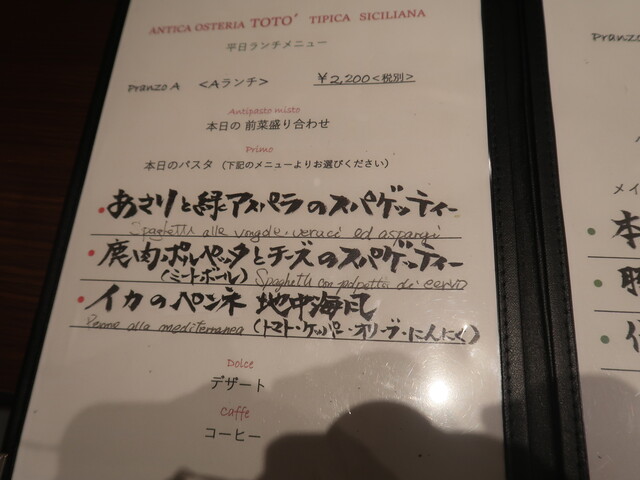 ANTICA OSTERIA TOTO' TIPICA SICILIANA
平日ランチメニュー
Pranzo A <Aランチ> ¥2,200<税別>
Antipasto misto
本日の 前菜盛り合わせ
Primo
本日のパスタ (下記のメニューよりお選びください)
・あさりと緑アスパラのスパゲッティー
Spaghetti alle vongole veraci ed aspargi
・鹿肉ポルペッタとチーズのスパゲティー
(ミートボール) Spaghetti con polpetta di cervo
・イカのペンネ 地中海風
Penne alla mediterranea (トマト・ケッパー・オリーブ・にんにく)
Dolce
デザート
Caffe
コーヒー
Pranzo
メイ
・本